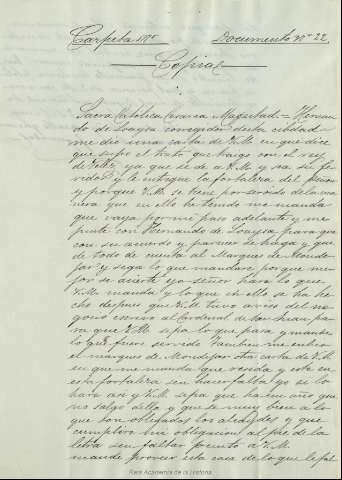 Carpeta nº Documento nº 22
Copia
Sacra Católica Cesarea Magestad = Hernan
do de Loaysa corregidor desta ciudad
me dio una carta de V.M. en que dice
que supo el trato que traigo con el rey
de Velez ya que se dé a V.M. y sea su ser
vidor y le entregue la fortaleza del peñon
y porque V.M. se tiene por servido de la ma
nera que en ello he tenido me manda
que vaya por mi paso adelante y me
junte con Hernando de Loaysa para que
con su acuerdo y parecer se haga y que
de todo de cuenta al Marques de Monde
jar y siga lo que mandare porque me
jor se acierte yo señor haré lo que
V.M. manda y lo que en ello se ha he
cho despues que V.M. tuvo aviso del ne
gocio escrivo al Cardenal de San Juan pa
ra que V.M. sepa lo que pasa y mande
lo que fuere servido Tambien me embio
el marques de Mondejar otra carta de V.M.
en que me manda que resida y este en
esta fortaleza sin hacer falta yo se lo
hara asi y V.M. sepa que ha un año que
no salgo della y que se muy bien a lo
que son obligados los alcaides y que
cumplire mi obligacion al pie de la
letra sin faltar punto a V.M.
mande proveer esta casa de lo que le fal
Real Academia de la Historia